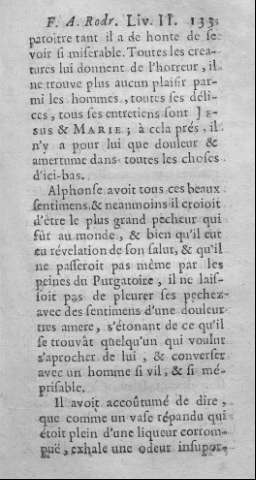 F. A. Rodr. Liv. II. 133
paroître tant il a de honte de se
voir si miserable. Toutes les crea-
tures lui donnent de l'horreur, il
ne trouve plus aucun plaisir par-
mi les hommes, toutes ses déli-
ces, tous ses entretiens sont JE-
SUS & MARIE; à cela prés, il
n'y a pour lui que douleur &
amertume dans toutes les choses
d'ici-bas.
Alphonse avoit tous ces beaux
sentimens & neanmoins il croioit
d'être le plus grand pecheur qui
fût au monde, & bien qu'il eut
eu révelation de son salut, & qu'il
ne passeroit pas même par les
peines du Purgatoire, il ne lais-
soit pas de pleurer ses pechez
avec des sentimens d'une douleur
tres amere, s'étonant de ce qu'il
se trouvât quelqu'un qui voulut
s'aprocher de lui, & converser
avec un homme si vil, & si mé-
prisable.
Il avoit accoûtumé de dire,
que comme un vase répandu qui
étoit plein d'une liqueur corrom-
puë, exhale une odeur insupor-